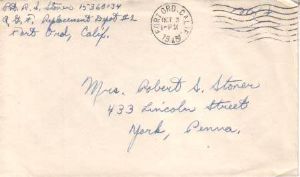 Pvt. R. S. Stoner 15360134
A.G.F. Replacement Depot #2
Fort Ord, Calif.
FORT ORD, CALIF.
OCT 3
PM
1945
Free
Mrs. Robert S. Stoner
433 Lincoln Street
York, Penna.